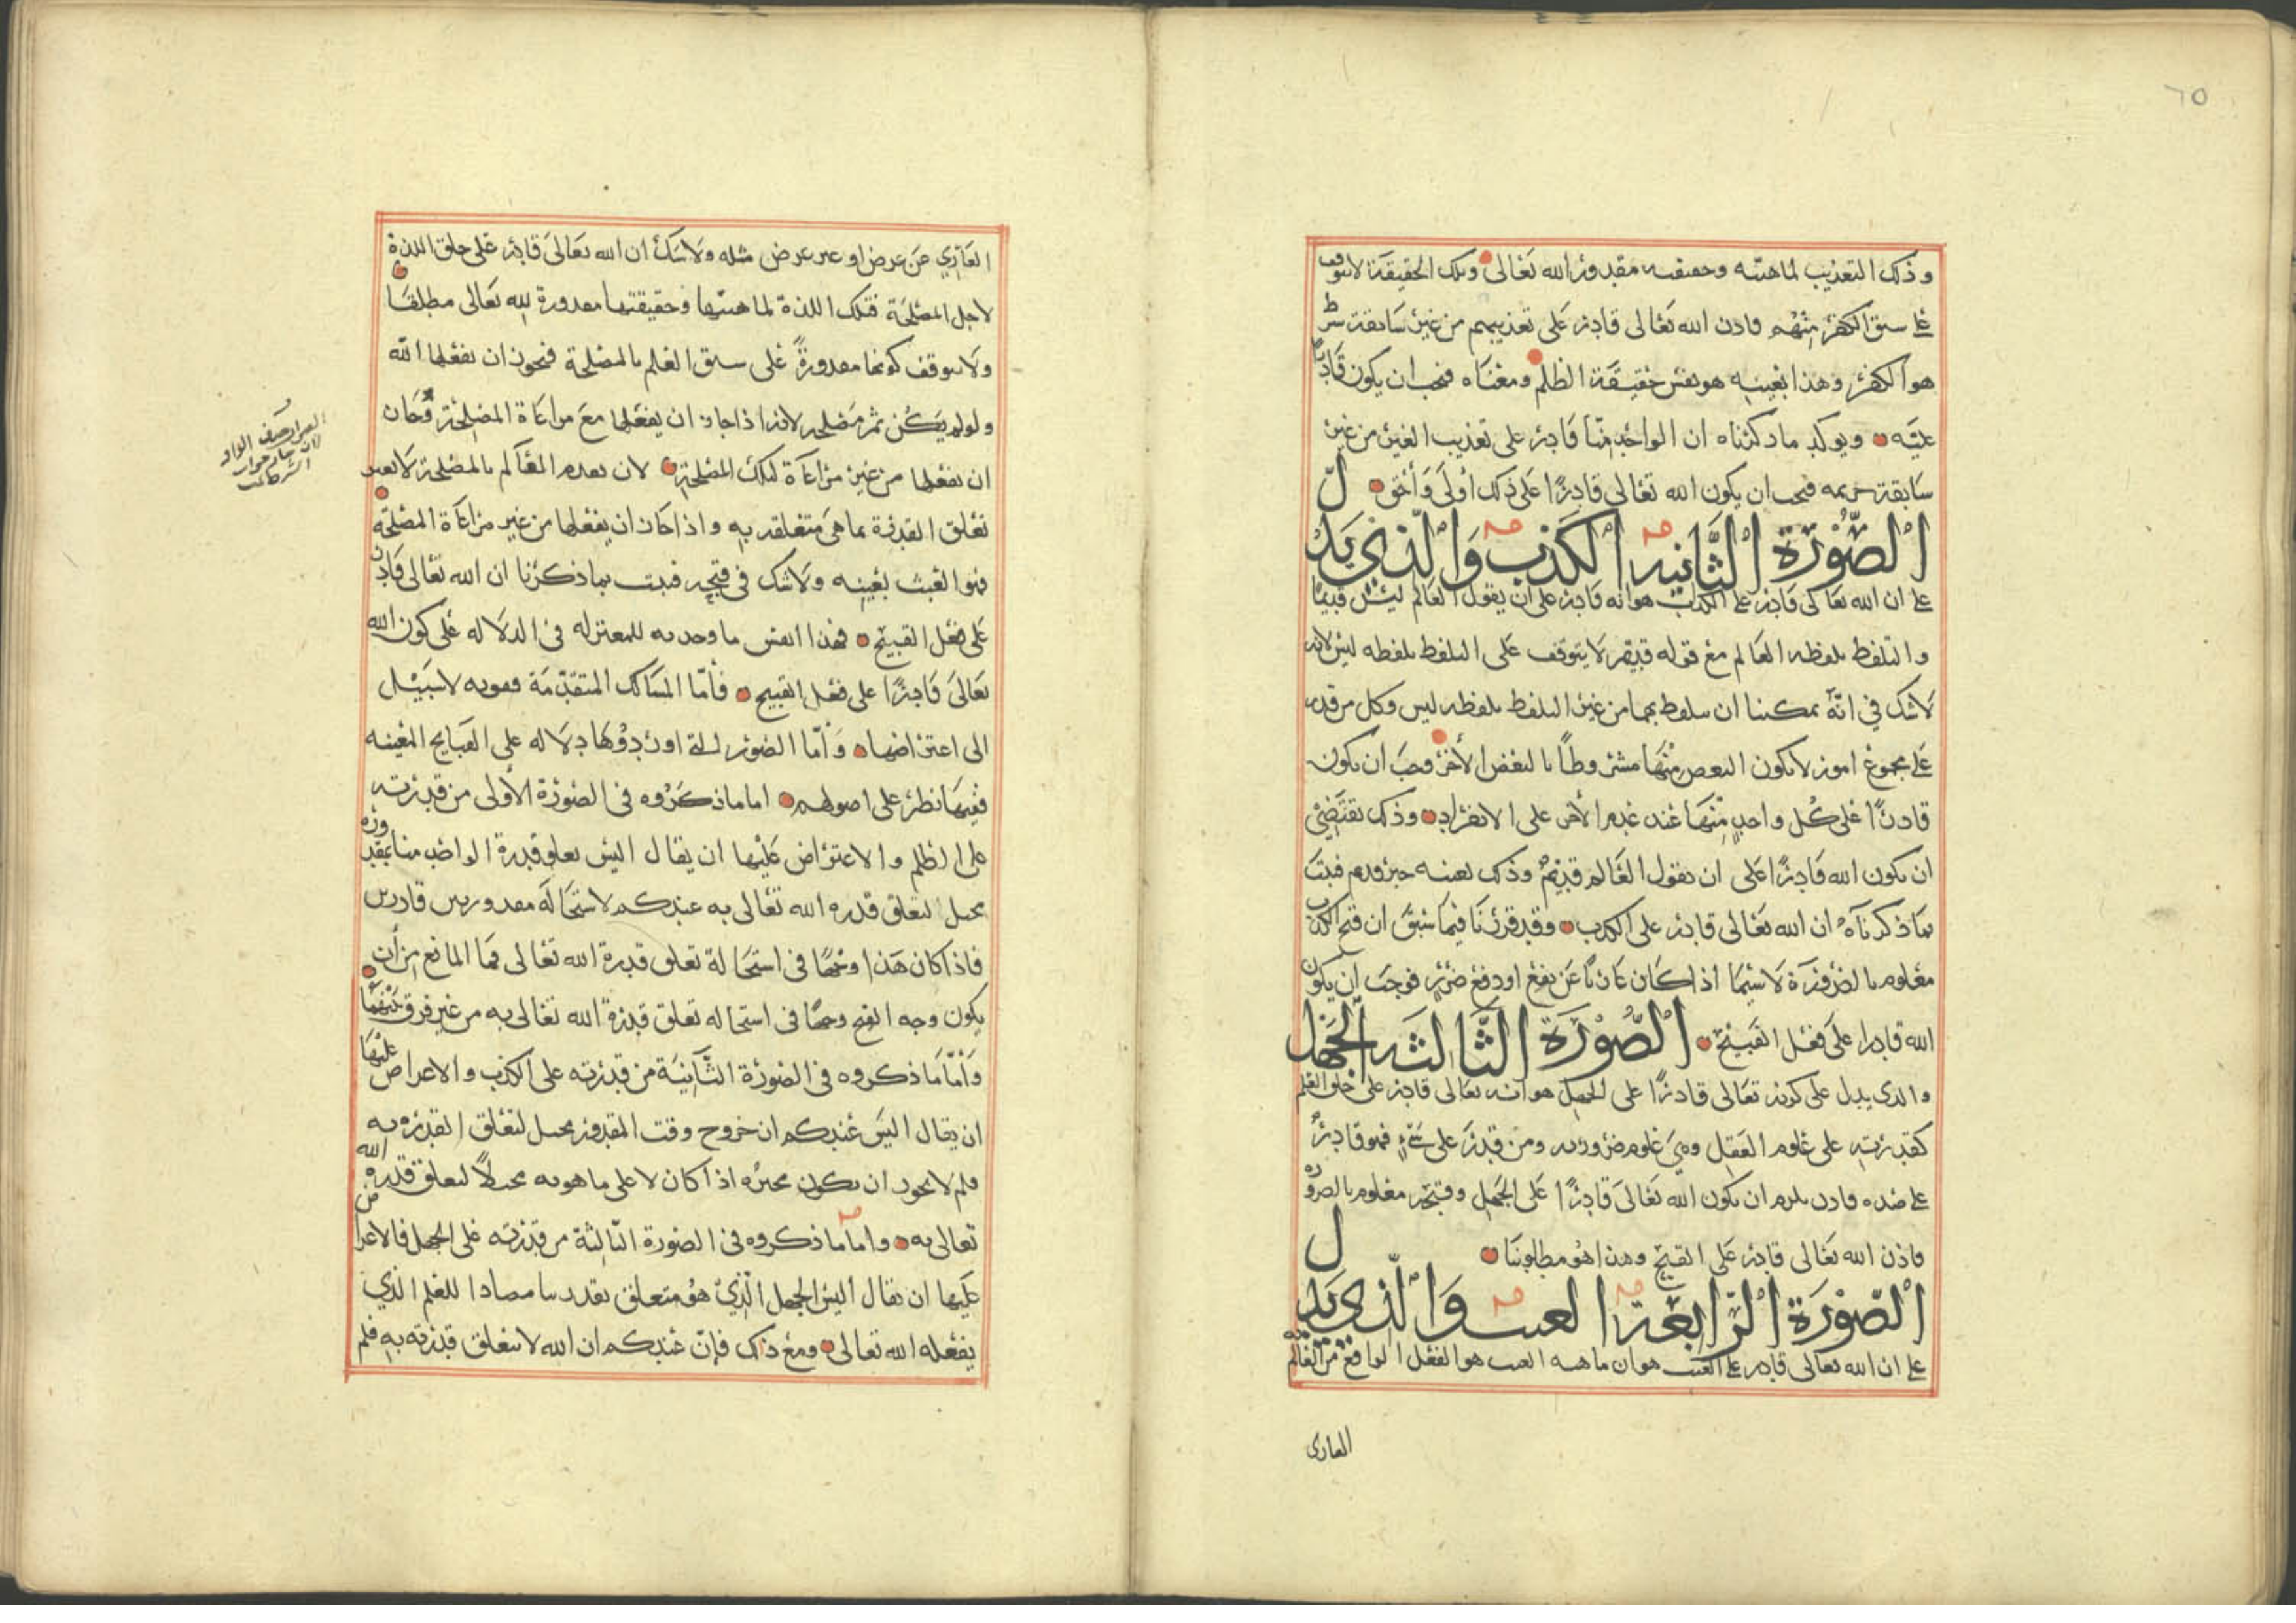 ٦٥
وذلك التعذيب لماهيته وحقيقته مقدور الله تعالى وتلك الحقيقة لا تتوقف
على سبق الكفر منهم فاذن الله تعالى قادر على تعذيبهم من غير سابقة شرط
هو الكفر وهذا بعينه هو نفس حقيقة الظلم ومعناه فيجب ان يكون قادرا
عليه ويوكد ما ذكرناه ان الواحد منا قادر على تعذيب الغير من غير
سابقة جريمه فيجب ان يكون الله تعالى قادرا على ذلك اولى وأحق
الصورة الثانيه الكذب والذي يدل
على ان الله تعالى قادر على الكذب هو انه قادر على ان يقول العالم ليس قديما
والتلفظ بلفظه العالم مع قوله قديم لا يتوقف على التلفظ بلفظه ليس لانه
لا شك في انه يمكننا ان نتلفظ بهما من غير التلفظ بلفظه ليس وكل من قدر
على مجموع امور لا يكون البعض منها مشروطا بالبعض الأخر وجب ان يكون
قادرا على كل واحد منها عند عدم الأخر على الانفراد وذلك يقتضي
ان يكون الله قادرا على ان يقول العالم قديم وذلك بعينه خبر قدم فثبت
بما ذكرناه ان الله تعالى قادر على الكذب وقد قررنا فيما سبق ان قبح الكذب
معلوم بالضرورة لا سيما اذا كان عاريا عن نفع او دفع ضرر فوجب ان يكون
الله قادرا على فعل القبيح الصورة الثالثه الجهل
والذي يدل على كونه تعالى قادرا على الجهل هو انه تعالى قادر على خلق العلم
كقدرته على علوم العقل وهي علوم ضروريه ومن قدر على شيء فهو قادر
على ضده فاذن يلزم ان يكون الله تعالى قادرا على الجهل وقبحه معلوم بالضروره
فاذن الله تعالى قادر على القبيح وهذا هو مطلوبنا
الصورة الرابعة العبث والذي يدل
على ان الله تعالى قادر على العبث هو ان ماهيه العبث هو الفعل الواقع من العالم
العارى
العاري عن عرض او عن عرض مثله ولا شك ان الله تعالى قادر على خلق اللذة
لاجل المصلحة فتلك اللذة لماهيتها وحقيقتها مقدورة لله تعالى مطلقا
ولا يتوقف كونها مقدورة على سبق العلم بالمصلحة فيجوز ان يفعلها الله
ولو لم يكن ثم مصلحه لانه اذا جاز ان يفعلها مع مراعاة المصلحة وجاز
ان يفعلها من غير مراعاة تلك المصلحة لان تقدم العالم بالمصلحة لا يغير
تعلق القدرة بما هي متعلقه به واذا جاز ان يفعلها من غير مراعاة المصلحة
فهو العبث بعينه ولا شك في قبحه فثبت بما ذكرنا ان الله تعالى قادر
على فعل القبيح فهذا انفس ما وجدته للمعتزله في الدلاله على كون الله
تعالى قادرا على فعل القبيح فأما المسالك المتقدمة فهويه لا سبيل
الى اعتراضها وأما الصور التي اوردوها دلاله على القبايح المعينه
ففيها نظر على اصولهم اما ما ذكروه في الصورة الأولى من قدرته
على الظلم والاعتراض عليها ان يقال اليس تعلق قدرة الواحد منا بمقدوره
محيل لتعلق قدره الله تعالى به عندكم لاستحالة مقدور بين قادرين
فاذا كان هذا وجها في استحالة تعلق قدرة الله تعالى فما المانع من أن
يكون وجه القبح وجها في استحاله تعلق قدرة الله تعالى به من غير فرق بينهما
وأما ما ذكروه في الصورة الثانية من قدرته على الكذب والاعتراض عليها
ان يقال اليس عندكم ان خروج وقت المقدور محيل لتعلق القدره به
فلم لا يجوز ان يكون مخبره اذا كان لا على ما هو به محيلا لتعلق قدره الله
تعالى به واما ما ذكروه في الصورة الثالثة من قدرته على الجهل فالاعتراض
عليها ان يقال اليس الجهل الذي هو متعلق بقدرتنا مضادا للعلم الذي
يفعله الله تعالى ومع ذلك فإن عندكم ان الله لا تتعلق قدرته به فلم
حذف الواو
لان جاز جواب